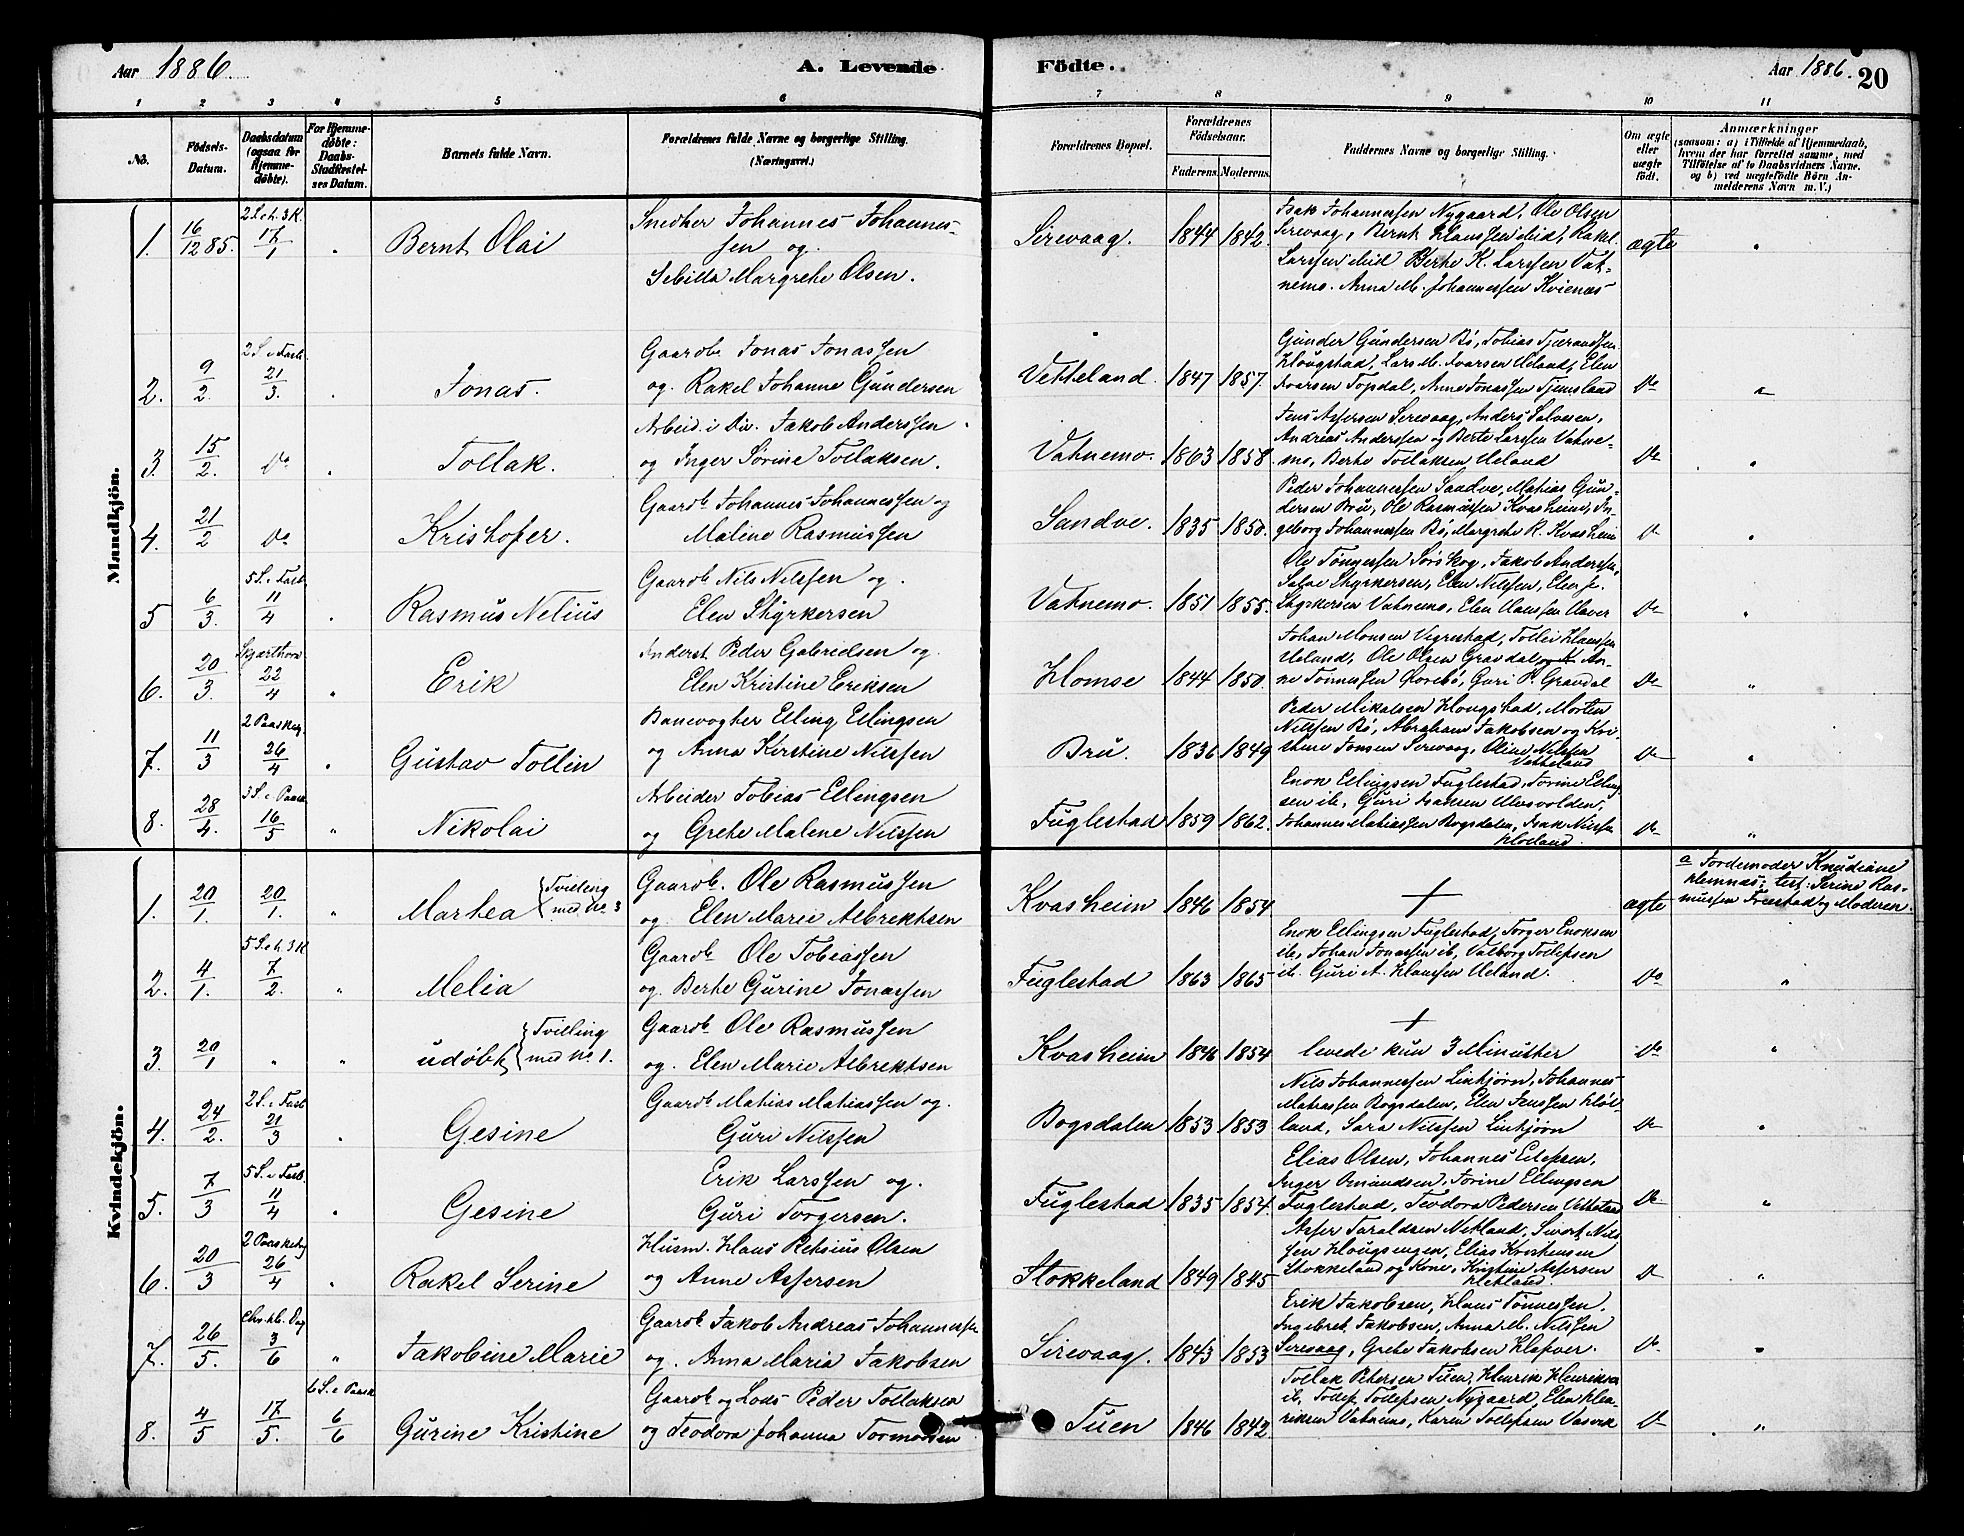 Aar 1886.
A. Levende Födte.
Aar 1886. 20
1 2 3 4 5 6 7 8 9 10 11
No.
Födsels-Datum.
Daabsdatum (ogsaa for Hjemme-döbte).
For Hjemme-döbte: Daabs-Stadfæstel-ses Datum.
Barnets fulde Navn.
Forældrenes fulde Navne og borgerlige Stilling. (Næringsvei.)
Forældrenes Bopæl.
Forældrenes Födselsaar.
Faderens. Moderens.
Faddernes Navne og borgerlige Stilling.
Om ægte eller uægte födt.
Anmærkninger
(saasom: a) i Tilfælde af Hjemmedaab,
hvem der har forrettet samme, med
Tilföielse af to Daabsvidners Navne.
og b) ved uægtefödte Börn An-
melderens Navn m. V.)
Mandkjön.
1. 16/12 85. 2 S. e. h. 3 K. 17/1 " Bernt Olai
Snedker Johannes Johannes-
sen og
Sebilla Margrethe Olsen.
Sirevaag. 1844 1842.
Isak Johannessen Nygaard, Ole Olsen
Sirevaag, Bernt Hanssen ibid, Rakel
Larssen ibid Berte K. Larssen Vat-
nemo. Anna M. Johannessen Kvienes
ægte "
2. 9/2. 2 S. i Fast. 21/3. " Jonas.
Gaardb. Jonas Jonassen
og. Rakel Johanne Gundersen
Vetteland. 1847 1857.
Gunder Gundersen Bö, Tobias Tjerandsen
Hougstad, Lars M. Ivarsen Ueland, Elen
Ivarsen Topdal, Anne Jonassen Tjemsland
Do "
3 15/2. Do " Tollak.
Arbeid. i Div. Jakob Anderssen
og Inger Sørine Tollaksen.
Vatnemo. 1863 1858.
Jens Assersen Sirevaag, Anders Salvesen,
Andreas Anderssen og Berte Larssen Vatne-
mo, Berte Tollaksen Ueland
Do "
4. 21/2 Do Kristofer.
Gaardb. Johannes Johannessen og
Malene Rasmussen
Sandve. 1835 1850.
Peder Johannessen Sandve, Mathias Gun-
dersen Bru, Ole Rasmussen Kvasheim, In-
geborg Johannessen Bö, Margrete R. Kvasheim
Do "
5 6/3. 5 S. i Fast. 11/4 " Rasmus Nelius
Gaardb. Nils Nilssen og.
Elen Styrkersen
Vatnemo. 1851 1855.
Ole Tönnessen Sørskog, Jakob Anderssen,
Salve Styrkersen, Elen Nilssen,
Styrkersen Vatnemo, Elen Hanssen
Do "
6. 20/3. Skjærthorsd. 22/4 " Erik
Inderst. Peder Gabrielsen og.
Elen Kristine Eriksen
Homse 1844 1850.
Johan Monsen Vigrestad, Tollei Hanssen
Ueland, Ole Olsen Gravdal og An-
ne Tönnessen, Guri P. Gravdal
Do "
7. 11/3 2 Paaskeg. 26/4 " Gustav Tollin
Banevogter Elling Ellingsen
og Anna Kirstine Nilssen
Bru. 1836 1849
Peder Mikalsen Hougstad, Morten
Nilssen Bö, Abraham Jakobsen og Kri-
stine Jonsen Sirevaag, Oline Nilssen
Vetteland
Do "
8. 28/4. 3 S. e. Paask. 16/5 " Nikolai
Arbeider Tobias Ellingsen
og Grete Malene Nilssen
Fuglestad 1859 1862.
Enok Ellingsen Fuglestad, Torine Elling-
sen ib., Guri Hansen,
Johannes Mathiassen Bogsdalen, Isak Nilssen
Hodland.
Do "
Kvindekjön.
1. 20/1. 20/1. " Martea {Tvilling med No. 3
Gaardb. Ole Rasmussen
og Elen Marie Albrektsen
Kvasheim 1846 1854 + ægte
a Jordemoder Knudiane
Hemnæs; test: Serine Ras-
mussen Træstad og Moderen.
2. 4/1. 5 S. e. h. 3 K. 7/2. " Melia
Gaardb. Ole Tobiassen
og. Berte Gurine Jonassen
Fuglestad 1863 1865
Enok Ellingsen Fuglestad, Torger Enoksen
ib., Johan Jonassen ib, Valborg Tollefsen
ib. Guri A. Hanssen Ueland.
Do "
3. 20/1 " " udøbt {Tvilling med No. 1.
Gaardb. Ole Rasmussen
og. Elen Marie Albrektsen
Kvasheim 1846 1854
+
levede kun 3 Minutter
Do "
4. 24/2. 2 S. i Fast. 21/3 " Gesine
Gaardb. Mathias Mathiassen og.
Guri Nilssen
Bogsdalen 1853 1853
Nils Johannessen Linkjørn, Johannes
Mathiassen Bogsdalen, Elen Jenssen Hod-
land, Sara Nilssen Linkjørn
Do "
5. 7/3 5 S. i Fast. 11/4 " Gesine
Erik Larssen og.
Guri Torgersen.
Fuglestad 1835 1854.
Elias Olsen, Johannes Edefsen,
Inger Omundsen, Torine Ellingsen
Fuglestad, Teodora Pedersen Vetteland
Do. "
6. 20/3 2 Paaskedag 26/4 " Rakel Serine
Husm. Hans Petsius Olsen
og Anne Assersen
Stokkeland 1849 1845
Asser Taraldsen Netland, Sivert Nils-
sen Hougsengen, Elias Kristensen
Stokkeland og Kone, Kristine Assersen
Netland.
Do "
7. 26/5. Chr. hl. Dag 3/6 " Jakobine Marie
Gaardb. Jakob Andreas Johannessen
og. Anna Maria Jakobsen
Sirevaag. 1843 1853
Erik Jakobsen, Hans Tönnessen.
Ingebret Jakobsen, Anna M. Nilssen
Sirevaag, Grete Jakobsen Hafver.
Do. "
8. 4/5 17/5. 6 S. e. Paask. 6/6 Gurine Kristine
Gaardb. og Lods Peder Tollaksen
og Teodora Johanna Tormodsen
Tuen 1846 1842
Tollak Petersen Tuen, Henrik Henriksen
ib, Tollef Tollefsen Nygaard, Elen Hen-
riksen Vatnemo, Karen Tollefsen
Do "